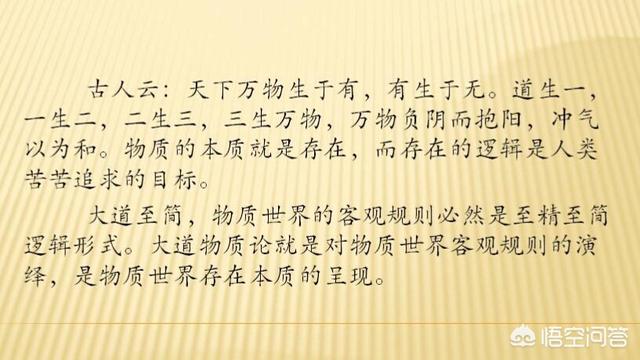 古人云：天下万物生于有，有生于无。道生一，
一生二，二生三，三生万物，万物负阴而抱阳，冲气
以为和。物质的本质就是存在，而存在的逻辑是人类
苦苦追求的目标。
大道至简，物质世界的客观规则必然是至精至简
逻辑形式。大道物质论就是对物质世界客观规则的演
绎，是物质世界存在本质的呈现。
悟空问答